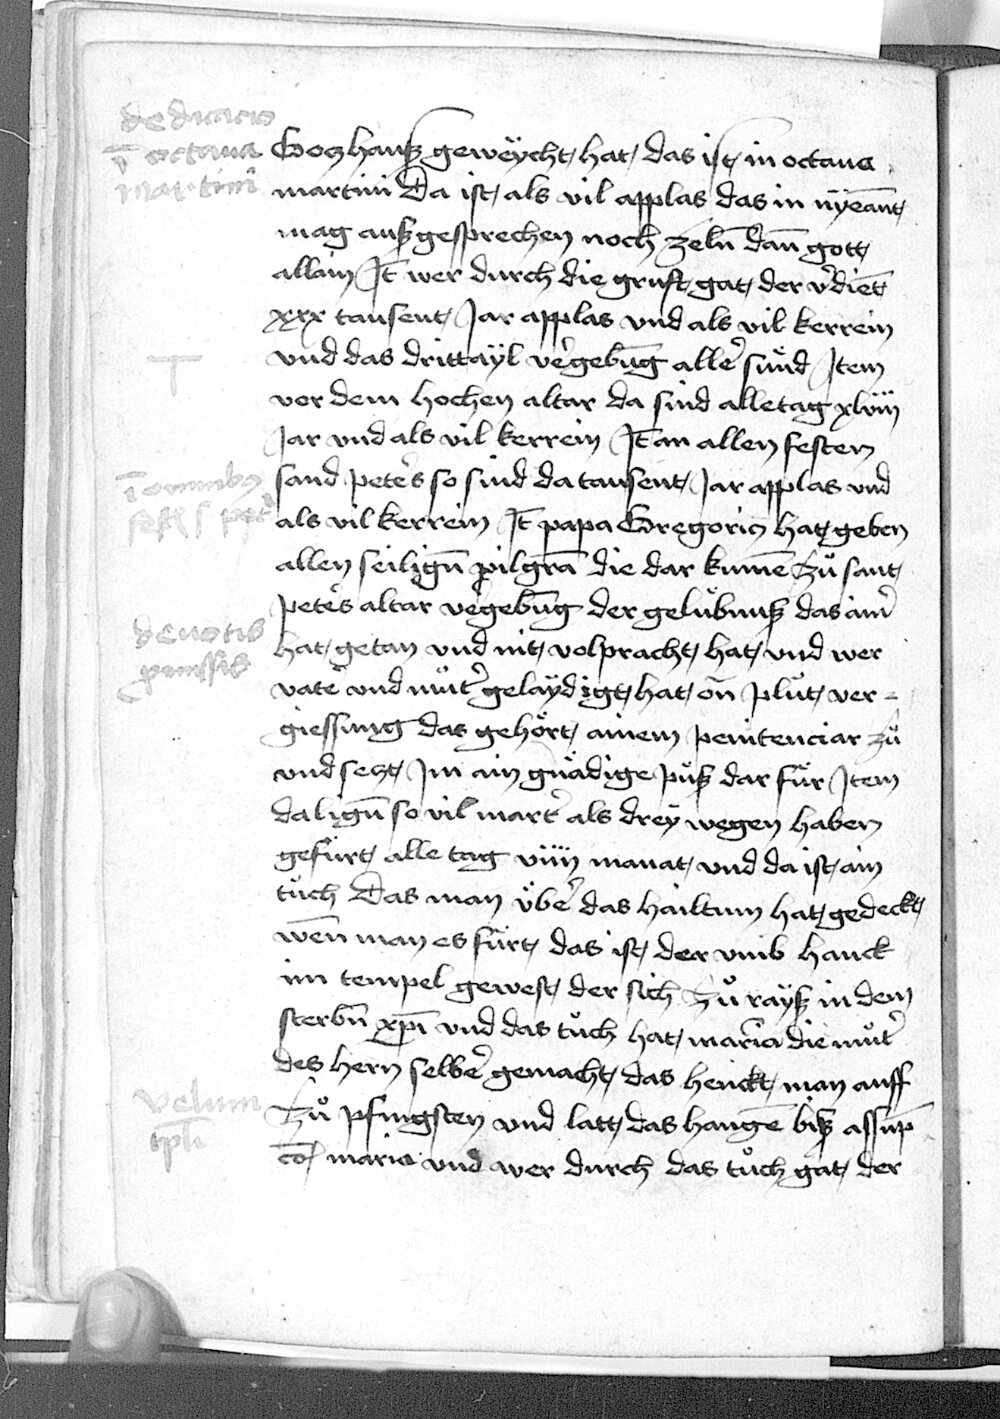 dedicacio
ī octaua
martini
Goczhauß geweÿcht hat das ist in octaua
martini Da ist als vil applas das in nÿēant
mag außgesprechen noch zeln̄ dan̄ gott
allain Jt̄ wer durch die gruft gat der v'diet
xxx tausent Jar applas vnd als vil kerrein
vnd das drittaÿl ve'gebūg alle' sünd Jtem
vor dem hochen altar da sind alletag xlviij
Jar vnd als vil kerrein Jt̄ an allen festen
ī omnibus
fest s pet'
sand pete's so sind da tausent Jar applas vnd
als vil kerrein Jt̄ papa Gregorius hat geben
allen seilign̄ pilgrā die dar kumē zů sant
pete's altar ve'gebūg der gelübnuß das aim'
devotis
pmissis
hat getan vnd nit volpracht hat vnd wer
vate' vnd můt' gelaÿdigt hat on̄ plůt ver-
giessung das gehört ainem penitenciar zů
vnd seczt Jm ain gnädige půß dar für Jtem
da lign̄ so vil mart' als dreÿ wegen haben
gefürt alle tag viiij manat vnd da ist ain
tůch Das man übe' das hailtum hat gedeckt
wen̄ man es fürt das ist der vmb hanck
im tempel gewest der sich zů raÿß in dem
sterbn̄ xp̄i vnd das tůch hat maria die můt'
des hern selbe' gemacht das henckt man auff
velum
tpli
zů pfingsten vnd latt das hangē biß assūp
cō marie vnd wer durch das tůch gat der